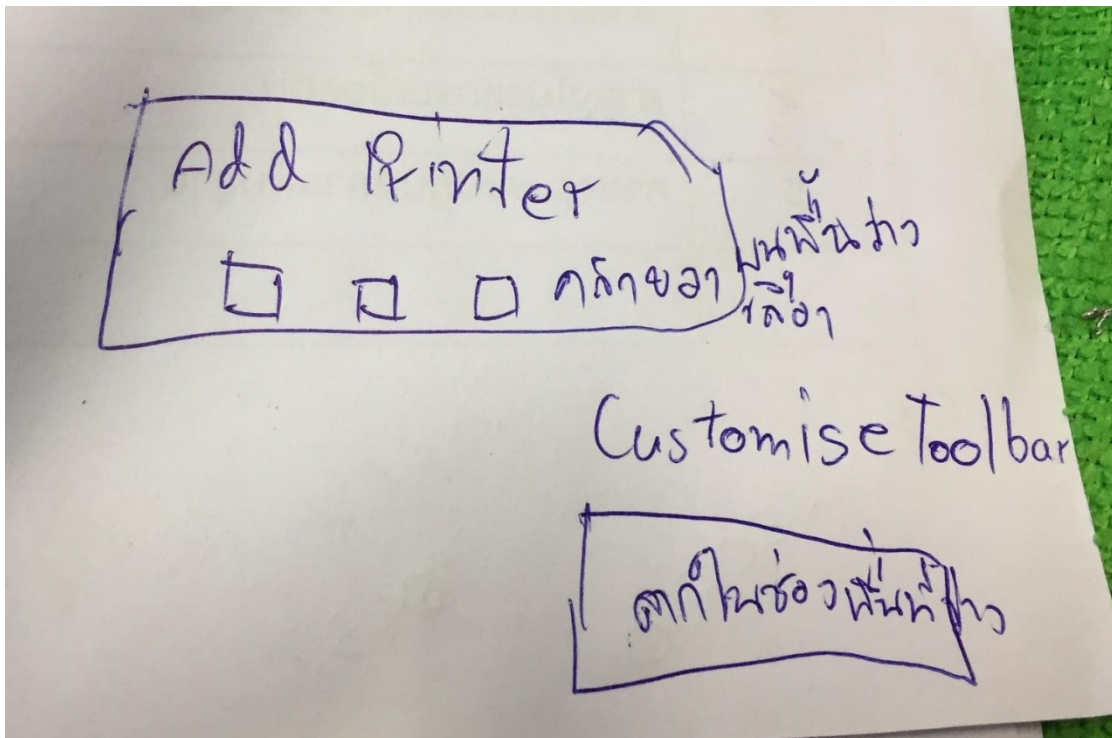 Add Printer
คลิกขวา บนพื้นว่าง
เลือก
Customise Toolbar
ลากในช่องพื้นที่ว่าง